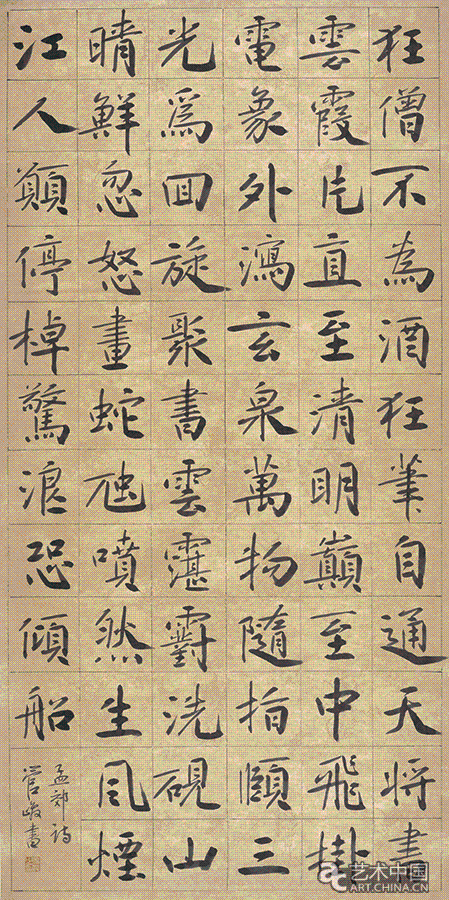 狂僧不為酒狂筆自通天將書
雲霞片直至清明巔至中飛掛
電象外瀉玄泉萬物隨指顧三
光爲囬旋聚書雲霮䨴洗硯山
晴鮮忽怒畫蛇虺噴然生風煙
江人願停棹驚浪恐傾船
孟郊詩
管峻書
艺术中国
ART.CHINA.CN